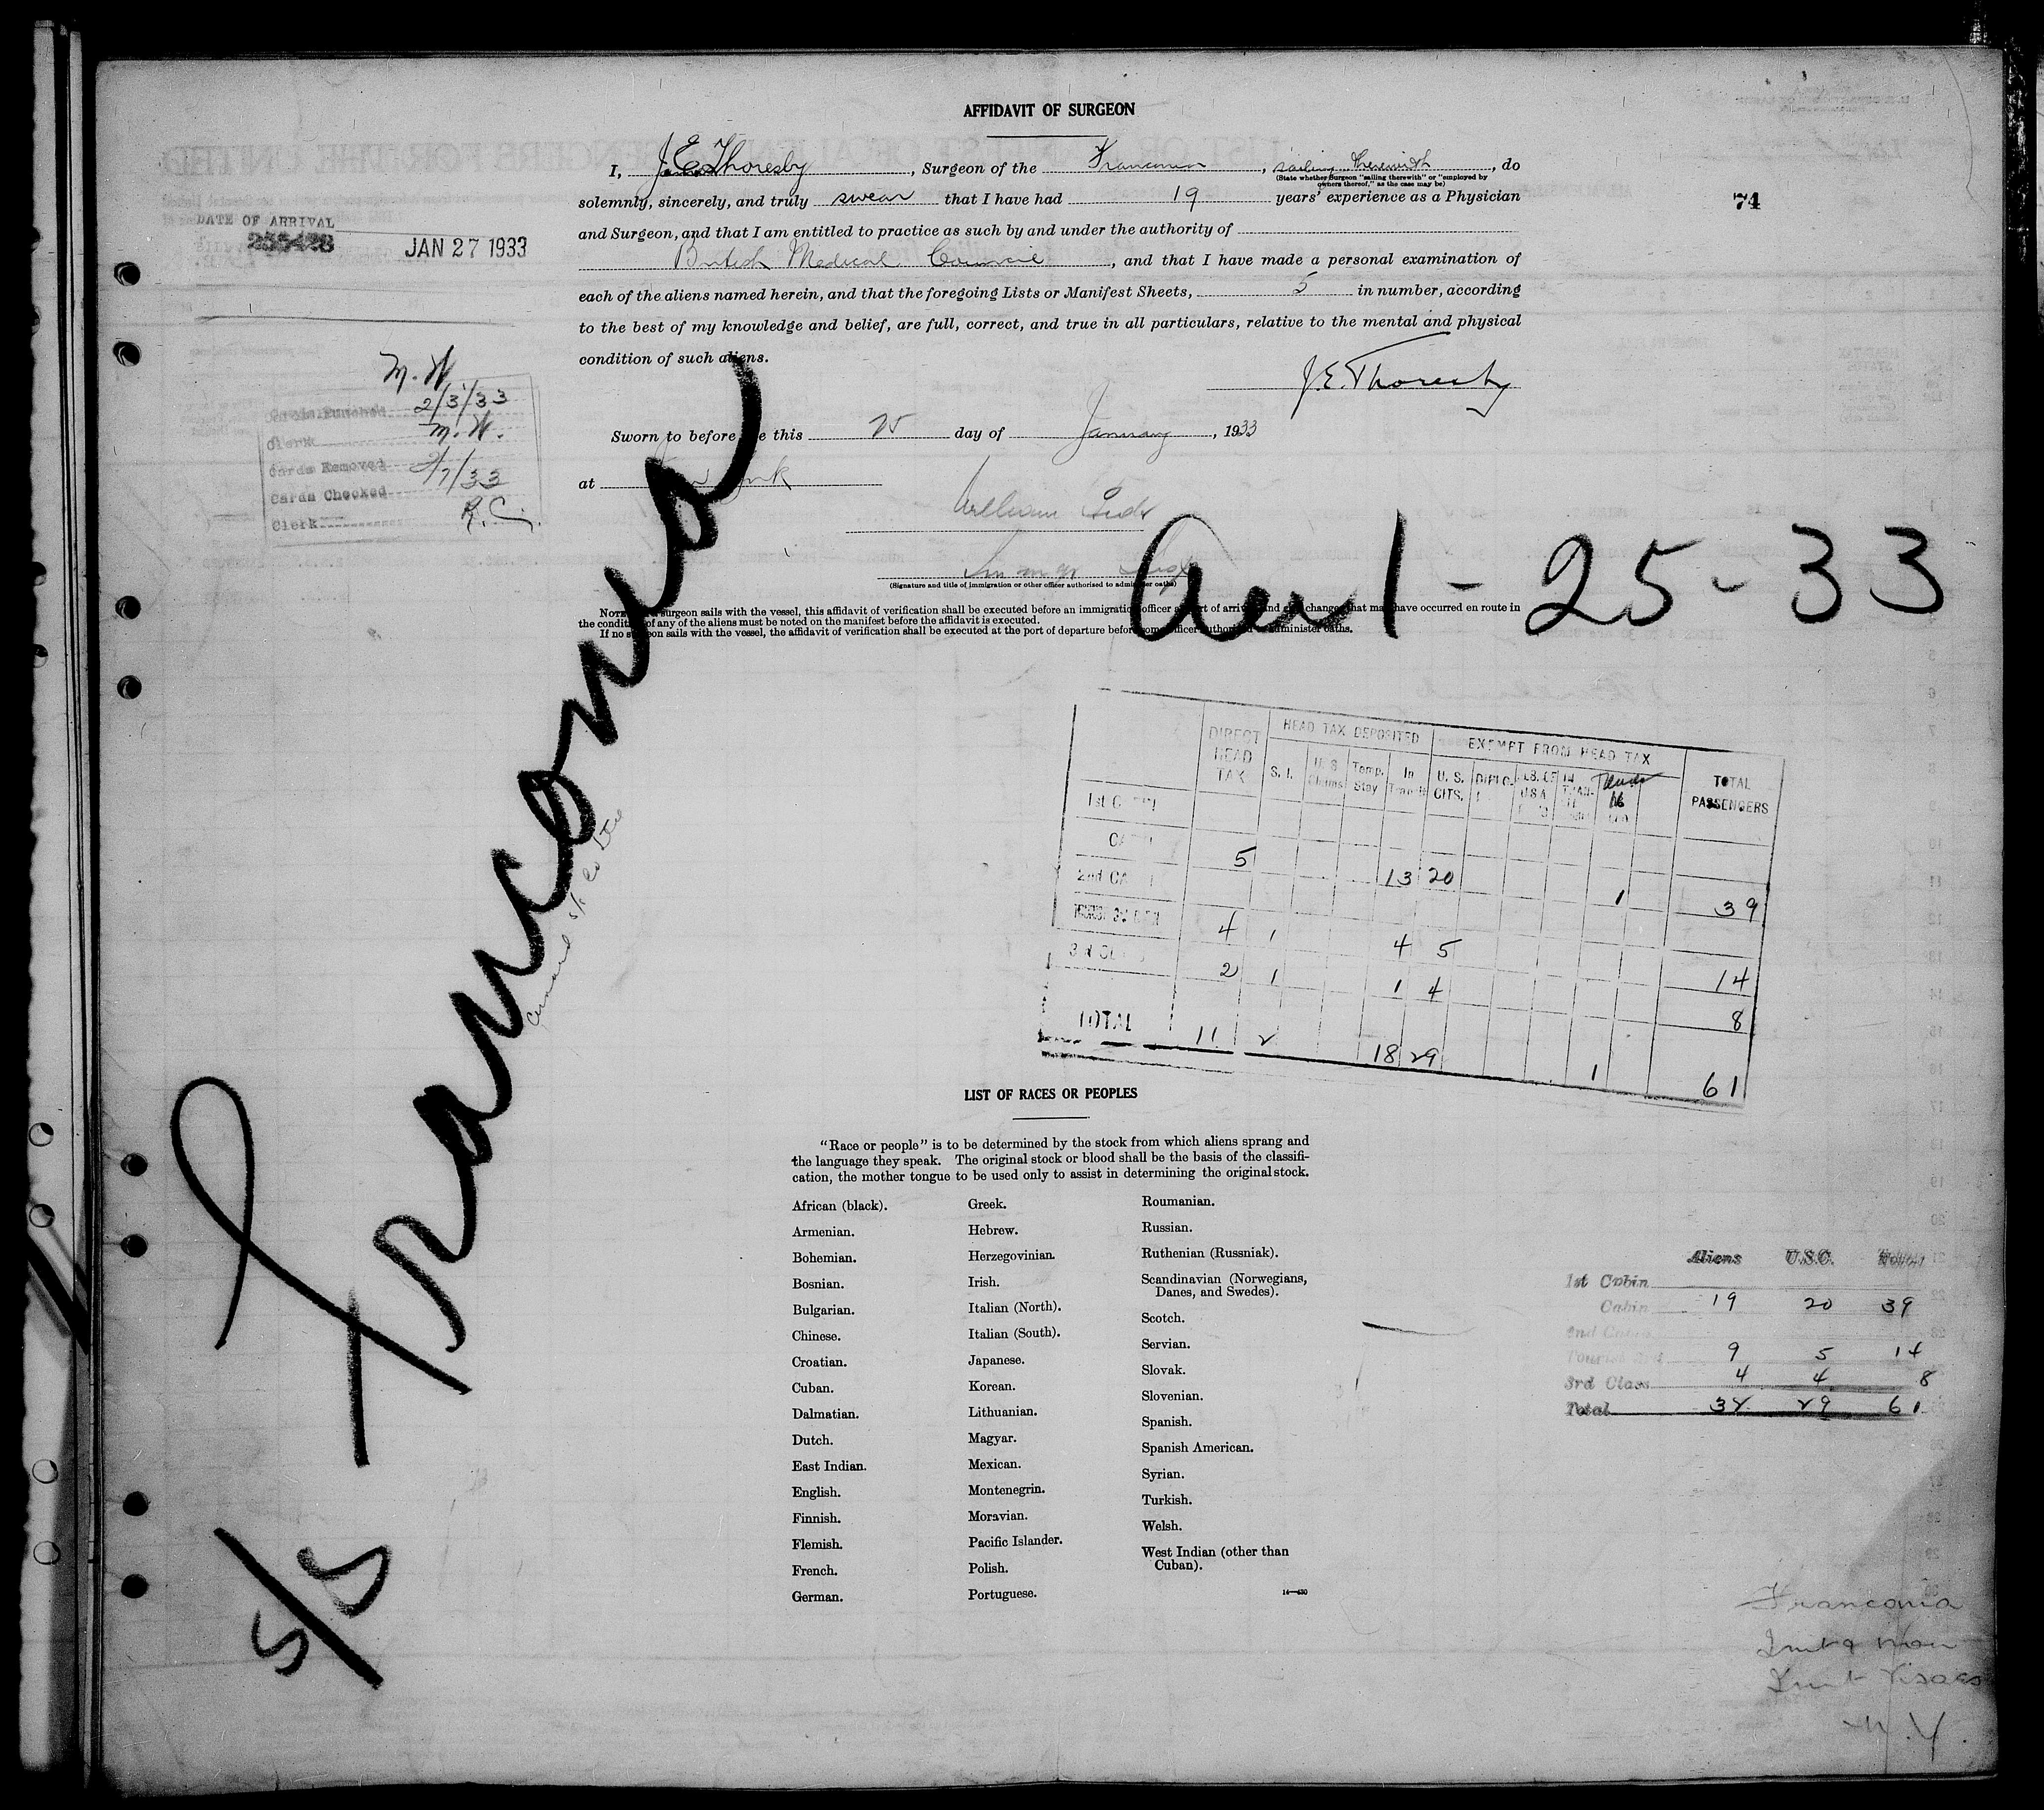 AFFIDAVIT OF SURGEON
I, J. E. Thoresby, Surgeon of the Franconia, sailing therewith, do
(State whether Surgeon "sailing therewith" or "employed by
owners thereof," as the case may be)
solemnly, sincerely, and truly swear that I have had 19 years' experience as a Physician
74
DATE OF ARRIVAL
JAN 27 1933
and Surgeon, and that I am entitled to practice as such by and under the authority of
British Medical Council, and that I have made a personal examination of
each of the aliens named herein, and that the foregoing Lists or Manifest Sheets, 5 in number, according
to the best of my knowledge and belief, are full, correct, and true in all particulars, relative to the mental and physical
condition of such aliens.
J. E. Thoresby
M. W.
Cards Punched 2/3/33
Clerk M. W.
Cards Removed
Cards Checked 2/7/33
Clerk R. C.
Sworn to before me this 25 day of January, 1933
at New York
William
(Signature and title of immigration or other officer authorized to administer oaths)
Arr 1-25-33
NOTE.—If a surgeon sails with the vessel, this affidavit of verification shall be executed before an immigration officer at port of arrival and any changes that may have occurred en route in
the condition of any of the aliens must be noted on the manifest before the affidavit is executed.
If no surgeon sails with the vessel, the affidavit of verification shall be executed at the port of departure before some officer authorized to administer oaths.
S/S Franconia
Cunard SS Co Ltd
DIRECT HEAD TAX
HEAD TAX DEPOSITED
EXEMPT FROM HEAD TAX
TOTAL PASSENGERS
S. I.
U. S. Claims
Temp. Stay
In Transit
U. S. CITS.
DIPLO.
1st CABIN
CABIN 5 13 20 1 39
2nd CABIN
TOURIST 3rd CABIN 4 1 4 5 14
3rd CLASS 2 1 1 4 8
TOTAL 11 2 18 29 1 61
LIST OF RACES OR PEOPLES
"Race or people" is to be determined by the stock from which aliens sprang and
the language they speak. The original stock or blood shall be the basis of the classifi-
cation, the mother tongue to be used only to assist in determining the original stock.
African (black).
Armenian.
Bohemian.
Bosnian.
Bulgarian.
Chinese.
Croatian.
Cuban.
Dalmatian.
Dutch.
East Indian.
English.
Finnish.
Flemish.
French.
German.
Greek.
Hebrew.
Herzegovinian.
Irish.
Italian (North).
Italian (South).
Japanese.
Korean.
Lithuanian.
Magyar.
Mexican.
Montenegrin.
Moravian.
Pacific Islander.
Polish.
Portuguese.
Roumanian.
Russian.
Ruthenian (Russniak).
Scandinavian (Norwegians,
Danes, and Swedes).
Scotch.
Servian.
Slovak.
Slovenian.
Spanish.
Spanish American.
Syrian.
Turkish.
Welsh.
West Indian (other than
Cuban).
14—430
Aliens U.S.C. Total
1st Cabin
Cabin 19 20 39
2nd Cabin
Tourist 3rd 9 5 14
3rd Class 4 4 8
Total 32 29 61
Franconia
N. Y.